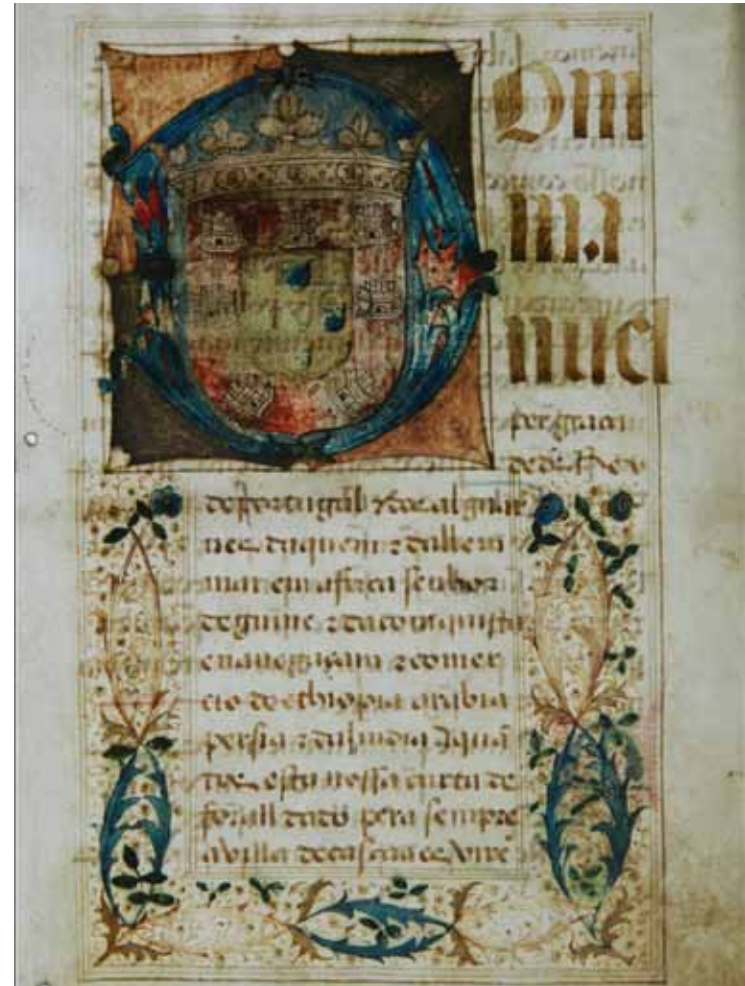 Dom
ma
nuel
per graca
de ds Rey
de portugal z dos algar
ves daquem z dallem
mar em africa senhor
de guine z da conquista
e navegaçam z comer
cio de ethiopia arabia
persia z da India A quã
tos esta nossa carta de
forall dado pera sempre
a villa de cascaaes virẽ